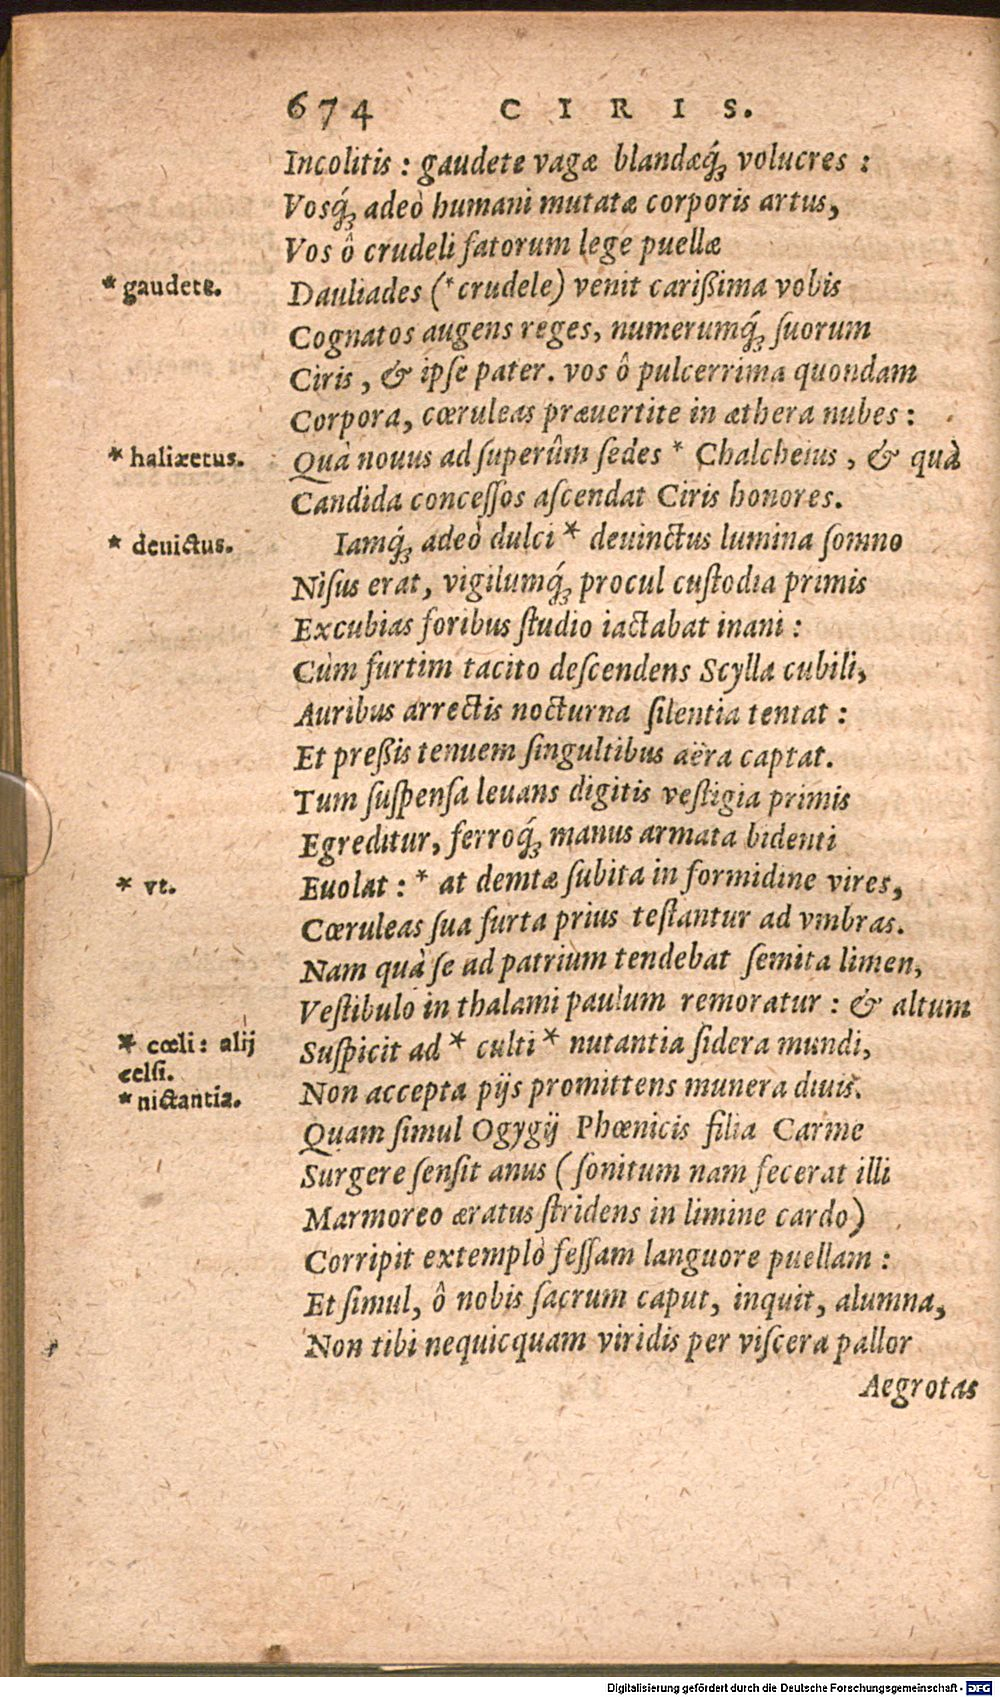 674 CIRIS.
Incolitis : gaudete vagæ blandæq́ꝫ volucres :
Vosq́ꝫ adeò humani mutatæ corporis artus,
Vos ô crudeli fatorum lege puellæ
* gaudete. Dauliades (*crudele) venit carißima vobis
Cognatos augens reges, numerumq́ꝫ ſuorum
Ciris, & ipſe pater. vos ô pulcerrima quondam
Corpora, cœruleas præuertite in æthera nubes :
* haliæetus. Quà nouus ad ſuperûm ſedes * Chalcheius, & quà
Candida conceſſos aſcendat Ciris honores.
* deuictus. Iamq́ꝫ adeò dulci * deuinctus lumina ſomno
Niſus erat, vigilumq́ꝫ procul cuſtodia primis
Excubias foribus ſtudio iactabat inani :
Cùm furtim tacito deſcendens Scylla cubili,
Auribus arrectis nocturna ſilentia tentat :
Et preßis tenuem ſingultibus aëra captat.
Tum ſuſpenſa leuans digitis veſtigia primis
Egreditur, ferroq́ꝫ manus armata bidenti
* vt. Euolat : * at demtæ ſubita in formidine vires,
Cœruleas ſua furta prius teſtantur ad vmbras.
Nam quà ſe ad patrium tendebat ſemita limen,
Veſtibulo in thalami paulum remoratur : & altum
* cœli : alij Suſpicit ad * culti * nutantia ſidera mundi,
celſi.
* nictantia. Non accepta pijs promittens munera diuis.
Quam ſimul Ogygij Phœnicis filia Carme
Surgere ſenſit anus (ſonitum nam fecerat illi
Marmoreo æratus ſtridens in limine cardo)
Corripit extemplò feſſam languore puellam :
Et ſimul, ô nobis ſacrum caput, inquit, alumna,
Non tibi nequicquam viridis per viſcera pallor
Aegrotas
Digitalisierung gefördert durch die Deutsche Forschungsgemeinschaft - DFG